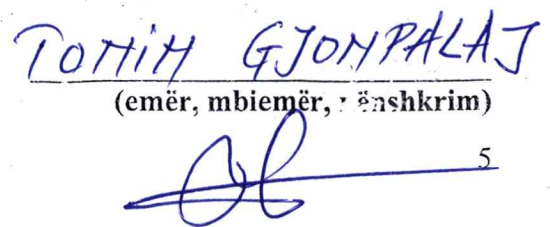 TOMIM GJOMPALAJ
(emër, mbiemër, nënshkrim)
5